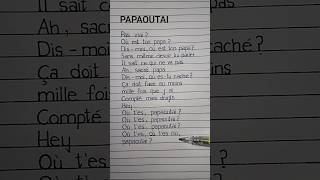 PAPAOUTAI
Pas vrai ?
Où est ton papa ?
Dis-moi, où est ton papa ?
Sans même devoir lui parler
Il sait ce qui ne va pas
Ah, sacré papa
Dis-moi, où es-tu caché ?
Ça doit faire au moins
mille fois que j'ai
Compté mes doigts
Hey
Où t'es, papaoutai ?
Où t'es, papaoutai ?
Où t'es, papaoutai ?
Où t'es, où t'es où,
papaoutai ?
Il sait
Ah, sacré
Dis-moi, où es-tu caché ?
Ça doit faire au moins
mille fois que j'
Compté
Hey
Où t'es,
Où t'es,